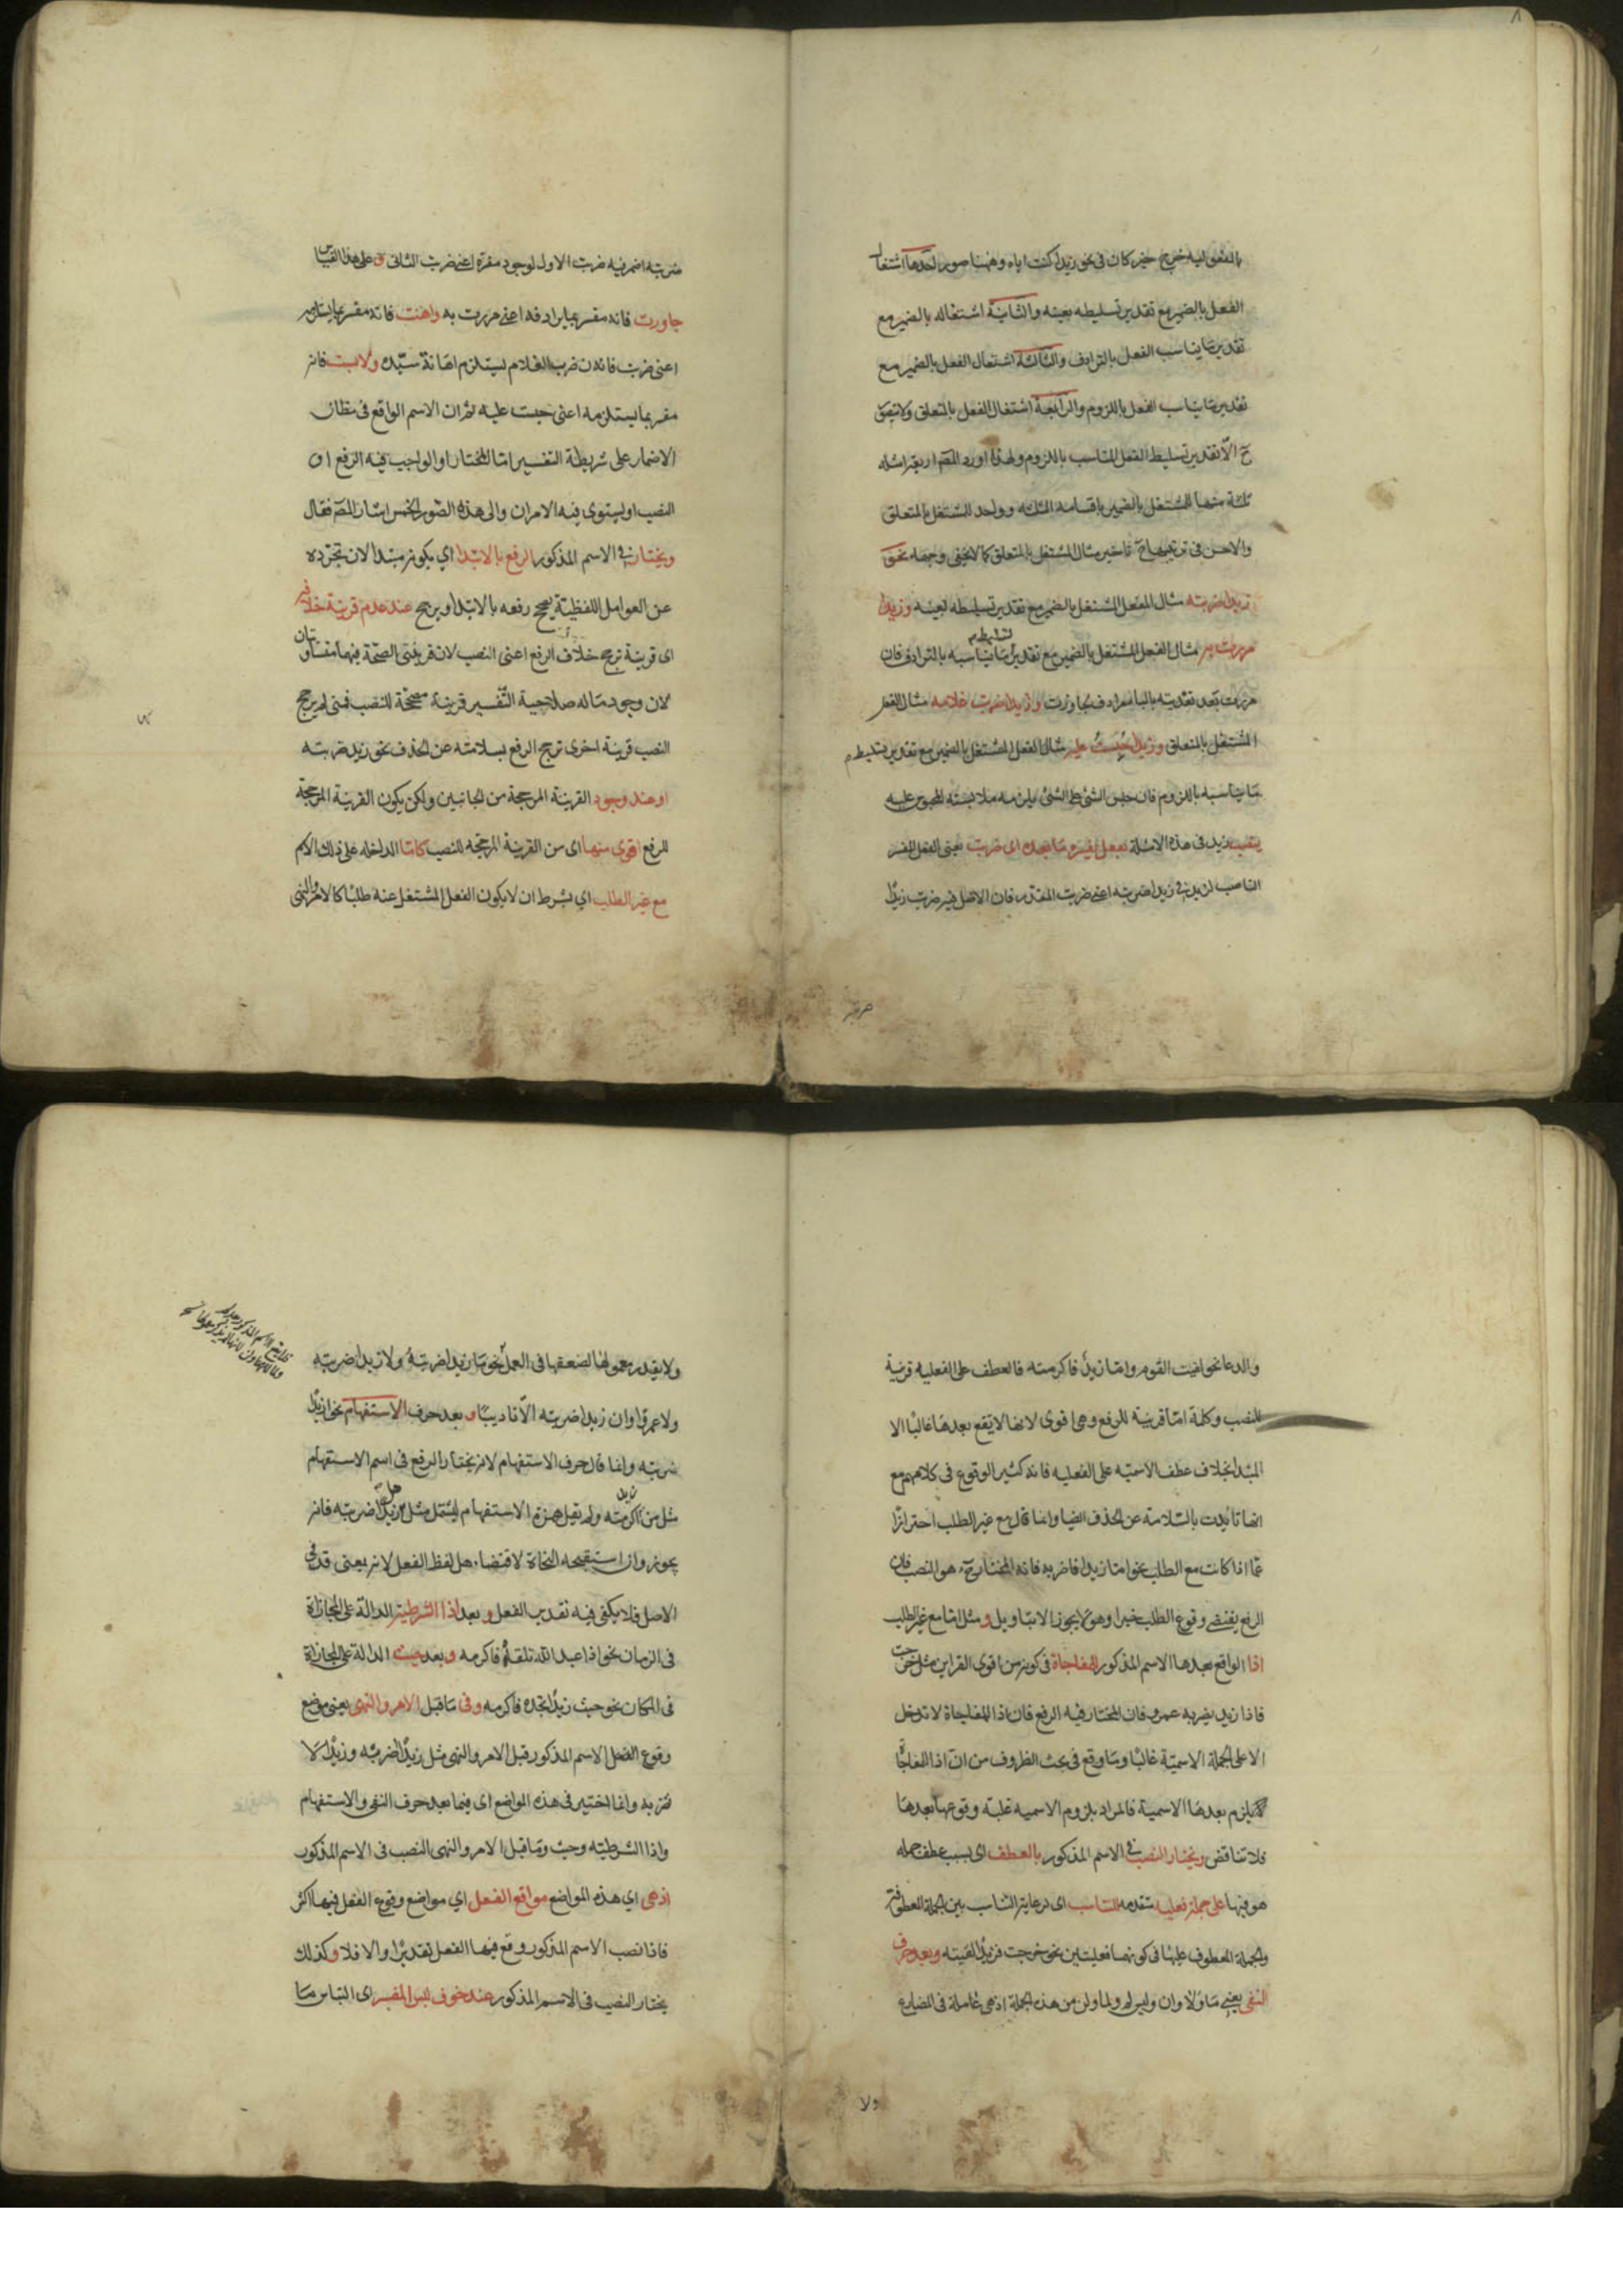 بالمفعولية خرج خبر كان في نحو زيدا كنت اياه وههنا صور احدها اشتغال
الفعل بالضمير مع تقدير تسليطه بعينه والثانية اشتغاله بالضمير مع
تقدير ما يناسب الفعل بالترادف والثالثة اشتغال الفعل بالضمير مع
تقدير ما يناسب الفعل باللزوم والرابعة اشتغال الفعل بالمتعلق ولا يتصور
ح الا تقدير تسليط الفعل المناسب باللزوم ولهذا اورد المص اربعة امثلة
ثلثة منها المشتغل بالضمير باقسامه الثلثة وواحد للمشتغل بالمتعلق
والاحسن في ترتيبها ح تاخير مثال المشتغل بالمتعلق كما لا يخفى وجهه نحو
زيدا ضربته مثال الفعل المشتغل بالضمير مع تقدير تسليطه بعينه وزيدا
مررت به مثال الفعل المشتغل بالضمير مع تقدير تسليط ما يناسبه بالترادف فان
مررت بعد تعديته بالباء مرادف لجاوزت وزيدا ضربت غلامه مثال الفعل
المشتغل بالمتعلق وزيدا حُبِسْتُ عليه مثال الفعل المشتغل بالضمير مع تقدير تسليط
ما يناسبه باللزوم فان حبس الشئ على الشئ يلزمه ملابسته المحبوس عليه
ينصب زيد في هذه الامثلة بفعل يفسره ما بعده اى ضربت يعني الفعل المفسر
الناصب لزيد في زيدا ضربته اعني ضربت المقدر فان الاصل فيه ضربت زيدًا
ضربته
ضربته اضمر فيه ضربت الاول لوجود مفسره اعني ضربت الثانى و على هذا القياس
جاوزت فانه مفسر بما يرادفه اعني مررت به واهنت فانه مفسر بما يستلزمه
اعنى ضربت فانه ضرب الغلام يستلزم اهانة سيّده ولابست فانه
مفسر بما يستلزمه اعنى حبست عليه ثم ان الاسم الواقع فى مظان
الاضمار على شريطة التفسير اما المختار او الواجب فيه الرفع او
النصب او يستوى فيه الامران والى هذه الصور الخمس اشار المص فقال
ويختار في الاسم المذكور الرفع بالابتداء اي بكونه مبتدا لان تجرّده
عن العوامل اللفظية يصحح رفعه بالابتداء ويرجح عند عدم قرينة خلافه
اى قرينة ترجح خلاف الرفع اعنى النصب لان قرينتى الصحّة فيهما متساويتان
لان وجود ما له صلاحية التّفسير قرينة مصحّحة للنصب فمتى لم يرجح
النصب قرينة اخرى ترجح الرفع بسلامته عن الحذف نحو زيد ضربته
او عند وجود القرينة المرجحة من الجانبين ولكن يكون القرينة المرجحة
للرفع اقوى منها اى من القرينة المرجحة للنصب كامّا الداخلة على ذلك الاسم
مع غير الطلب اي بشرط ان لا يكون الفعل المشتغل عنه طلبًا كالامر والنهى
والدعاء نحو لقيت القوم وامّا زيدٌ فاكرمته فالعطف على الفعلية قرينة
للنصب وكلمة امّا قرينة للرفع وهى اقوى لانها لا يقع بعدها غالبًا الا
المبتدا بخلاف عطف الاسميّة على الفعلية فانه كثير الوقوع فى كلامهم مع
انها تأيدت بالسلامة عن الحذف ايضا وانما قال مع غير الطلب احترازًا
عمّا اذا كانت مع الطلب نحو امّا زيدا فاضربه فانه المختار ح هو النصب فان
الرفع يقتضي وقوع الطلب خبرا وهو لا يجوز الا بتاويل و مثل امّا مع غير الطلب
اذا الواقع بعدها الاسم المذكور للمفاجاة في كونه من اقوى القراين مثل خرجت
فاذا زيد يضربه عمرو فان المختار فيه الرفع فان اذا المفاجاة لا تدخل
الا على الجملة الاسميّة غالبًا وما وقع فى بحث الظروف من انّ اذا للمفاجاة
يلزم بعدها الاسمية فالمراد بلزوم الاسمية غلبة وقوعها بعدها
فلا تناقض ويختار النصب في الاسم المذكور بالعطف اى بسبب عطف جملة
هو فيها على جملة فعلية متقدمة للتناسب اى لرعاية التناسب بين الجملة المعطوفة
والجملة المعطوف عليها فى كونهما فعليتين نحو خرجت فزيدًا لقيته وبعد حرف
النفى يعني ما ولا وان وليس لم ولما ولن من هذه الجملة اذ هى عاملة فى المضارع
ولا
ولا يقدر معمولها لضعفها فى العمل نحو ما زيدا ضربته ولا زيدا ضربته
ولا عمرًوا وان زيدا ضربته الّا تاديبًا و بعد حرف الاستفهام نحو ازيدًا
ضربته وانما قال حرف الاستفهام لانه يختار الرفع فى اسم الاستفهام
مثل من اكرمته ولم يقل همزة الاستفهام ليشتمل مثل هل زيدا ضربته فانه
يجوز وان استقبحه النحاة لاقتضاء هل لفظ الفعل لانه بمعنى قد فى
الاصل فلا يكفى فيه تقدير الفعل و بعد اذا الشرطية الدالة على المجازاة
فى الزمان نحو اذا عبد الله تلقاه فاكرمه و بعد حيث الدالة على المجازاة
فى المكان نحو حيث زيدًا تجده فاكرمه وفى ما قبل الامر والنهى يعني موضع
وقوع الفعل الاسم المذكور قبل الامر والنهى مثل زيدًا اضربه وزيدًا لا
تضربه وانما اختير فى هذه المواضع اى فيما بعد حرف النفى والاستفهام
واذا الشرطيّة وحيث وما قبل الامر والنهى النصب فى الاسم المذكور
اذ هى اي هذه المواضع مواقع الفعل اي مواضع وقوع الفعل فيها اكثر
فاذا نصب الاسم المذكور وقع فيها الفعل تقديرًا والا فلا وكذلك
يختار النصب فى الاسم المذكور عند خوف لبس المفسر اى التباس ما